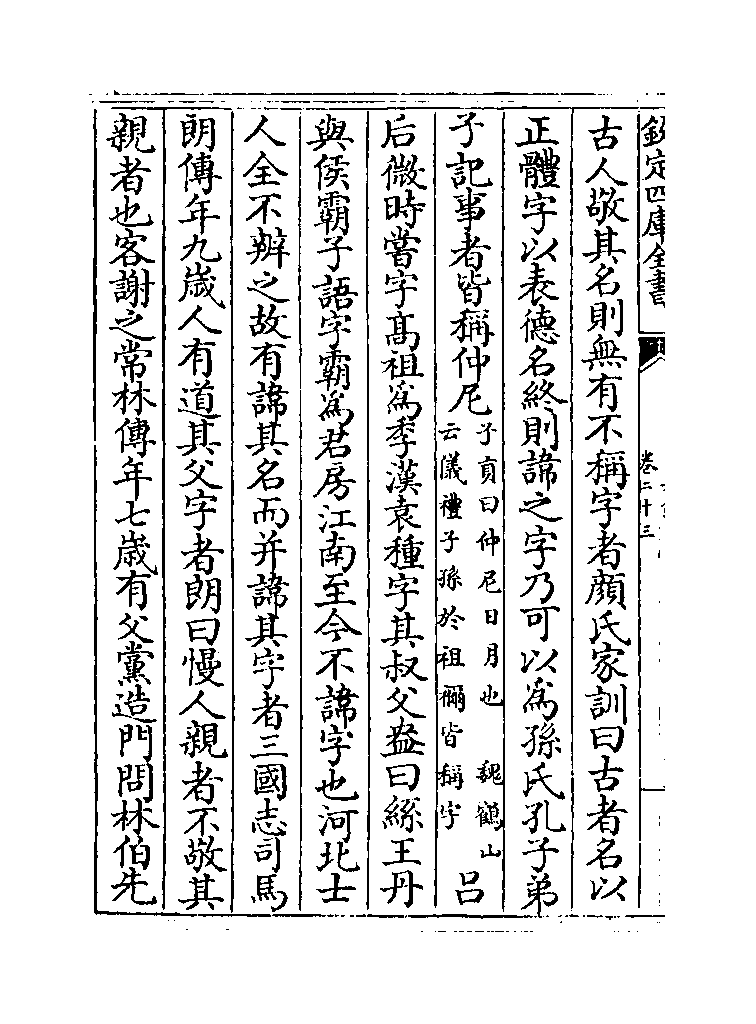 欽定四庫全書
卷二十三
古人敬其名則無有不稱字者顔氏家訓曰古者名以
正體字以表德名終則諱之字乃可以為孫氏孔子弟
子記事者皆稱仲尼子貢曰仲尼日月也 魏鶴山云儀禮子孫於祖禰皆稱字吕
后微時嘗字髙祖為季漢袁種字其叔父盎曰絲王丹
與侯霸子語字霸為君房江南至今不諱字也河北士
人全不辨之故有諱其名而并諱其字者三國志司馬
朗傳年九歲人有道其父字者朗曰慢人親者不敬其
親者也客謝之常林傳年七歲有父黨造門問林伯先